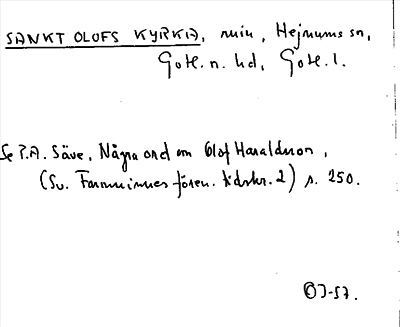 SANKT OLOFS KYRKA, ruin, Hejnums sn,
Gotl. n. hd, Gotl. l.
Se P.A. Säve, Några ord om Olof Haraldsson,
(Sv. Fornminnesfören. tidskr. 2) s. 250.
OJ-57.